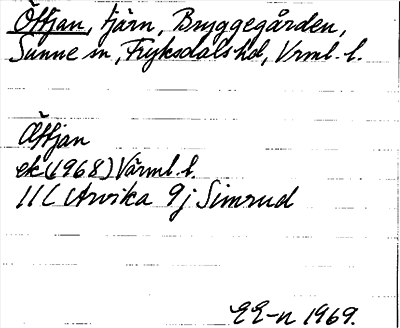 Öttjan, tjärn, Bryggegården,
Sunne sn, Fryksdals hd, Vrml. l.
Ättjan
ek (1968) Värml. l.
11C Arvika 9j Simrud
EE-n 1969.